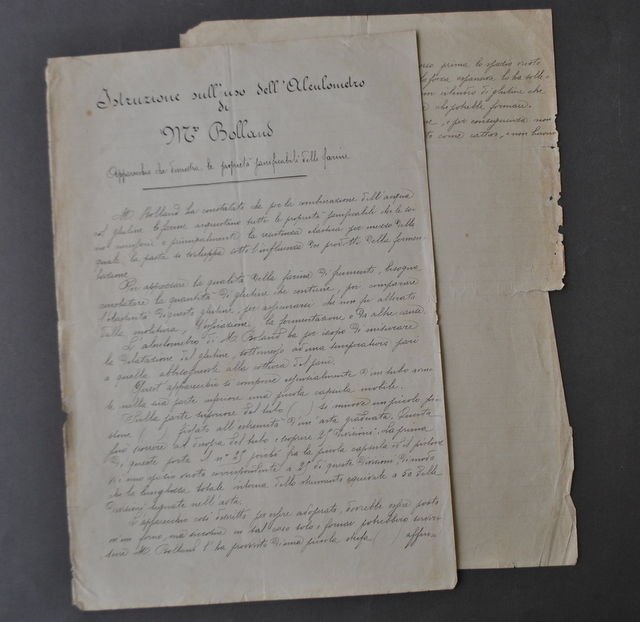 Istruzione sull'uso dell'Aleulometro
di
Mr Bolland
Apparecchio che dimostra le proprietà panificabili delle farine
M. Bolland ha constatato che per la combinazione dell'acqua
col glutine le farine acquistano tutte le proprietà panificabili che le so-
no necessarie e principalmente la resistenza elastica per mezzo della
quale, la pasta si sviluppa sotto l'influenza dei prodotti della fermen-
tazione.
Per apprezzare la qualità della farina di frumento, bisogna
constatare la quantità di glutine che contiene, poi comparare
l'elasticità di questo glutine, per assicurarsi che non fu alterato
dalla molitura, l'essicazione, la fermentazione o da altre cause.
L'aleulometro di M. Boland ha per iscopo di misurare
la dilatazione del glutine, sottomesso ad una temperatura pari
a quella abbisognevole alla cottura del pane.
Quest'apparecchio si compone essenzialmente d'un tubo avente
nella sua parte inferiore una piccola capsula mobile.
Sulla parte superiore del tubo ( ) si muove un piccolo pi-
stone ( ) fissato all'estremità d'un'asta graduata. Questa
può scorrere al di fuori del tubo e scoprire 25 divisioni. La prima
di queste porta il n° 25 perchè fra la piccola capsula ed il pistone
vi è uno spazio vuoto corrispondente a 25 di queste divisioni, di modo
che la lunghezza totale interna dello strumento equivale a 50 delle
divisioni segnate nell'asta.
L'apparecchio così descritto per essere adoperato, dovrebbe essere posto
in un forno, ma siccome in tal caso solo i fornai potrebbero servir-
sene M. Bolland l'ha provvisto di una piccola stufa ( ) affin-
prima lo spazio vuoto
la forza espansiva lo ha solle-
un cilindro di glutine che
che potrebbe formare.
e per conseguenza non
come cattivo, e non buono